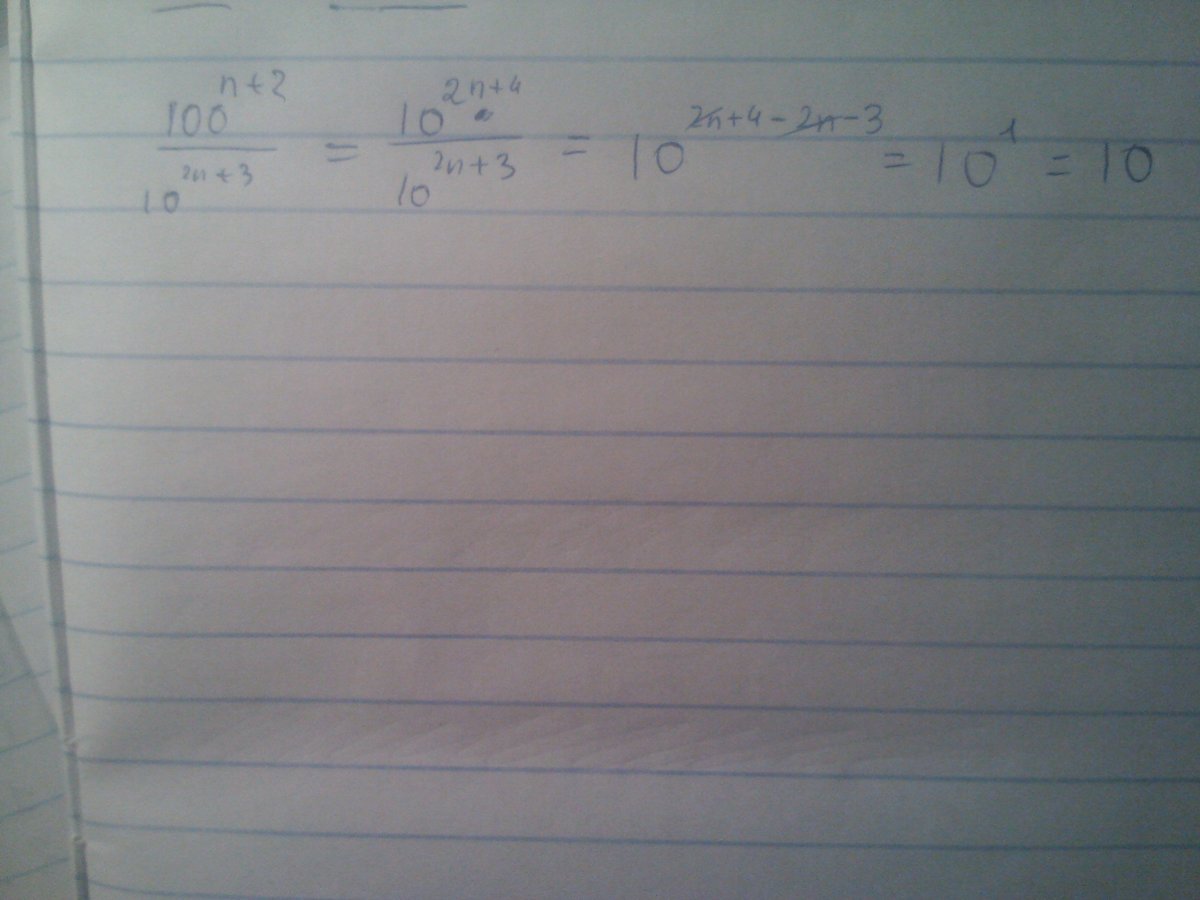 100^{n+2} / 10^{2n+3} = 10^{2n+4} / 10^{2n+3} = 10^{2n+4-2n-3} = 10^1 = 10